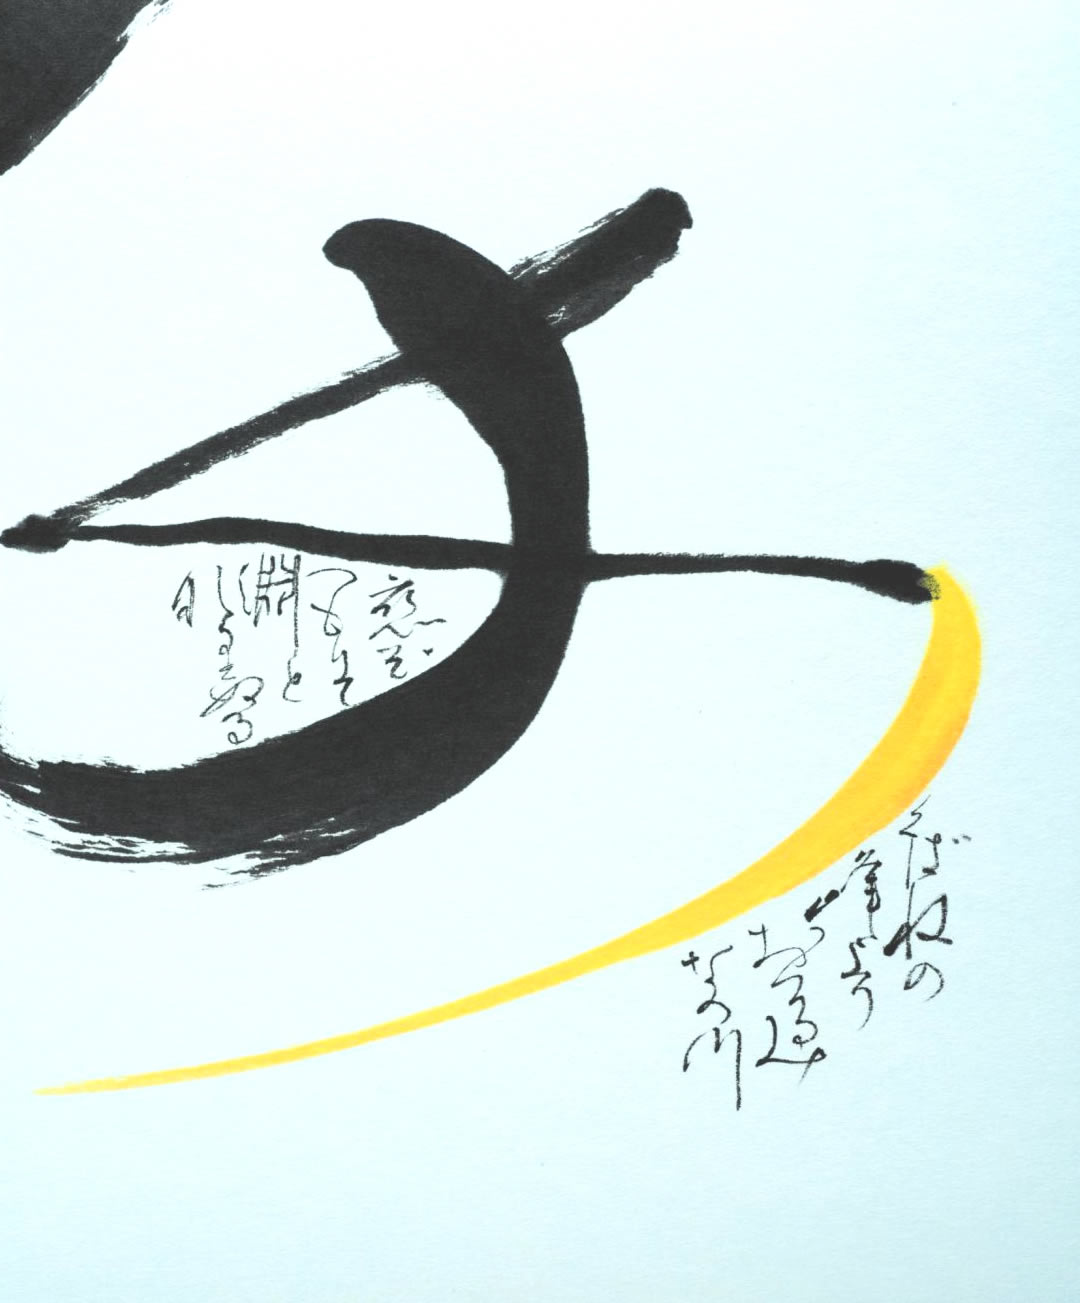 くばねの
峰より
おつるみ
なの川
恋ぞ
つもりて
淵と
なりぬる